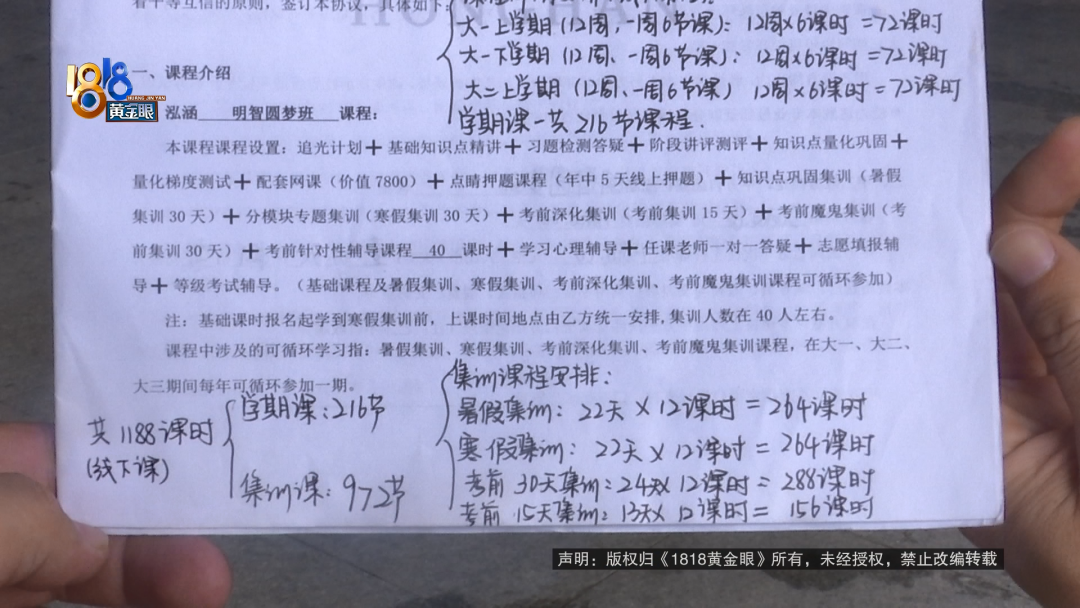 着平等互信的原则，签订本协议，具体如下：
大一上学期（12周，一周6节课）：12周×6课时＝72课时
大一下学期（12周、一周6节课）：12周×6课时＝72课时
大二上学期（12周、一周6节课） 12周×6课时＝72课时
学期课一共216节课程.
一、课程介绍
1818
HUANG JIN YAN
黄金眼
泓涵 明智圆梦班 课程：
本课程课程设置：追光计划＋基础知识点精讲＋习题检测答疑＋阶段讲评测评＋知识点量化巩固＋
量化梯度测试＋配套网课（价值7800）＋点睛押题课程（年中5天线上押题）＋知识点巩固集训（暑假
集训30天）＋分模块专题集训（寒假集训30天）＋考前深化集训（考前集训15天）＋考前魔鬼集训（考
前集训30天）＋考前针对性辅导课程 40 课时＋学习心理辅导＋任课老师一对一答疑＋志愿填报辅
导＋等级考试辅导。（基础课程及暑假集训、寒假集训、考前深化集训、考前魔鬼集训课程可循环参加）
注：基础课时报名起学到寒假集训前，上课时间地点由乙方统一安排,集训人数在40人左右。
课程中涉及的可循环学习指：暑假集训、寒假集训、考前深化集训、考前魔鬼集训课程，在大一、大二、
大三期间每年可循环参加一期。
共1188课时
（线下课）
学期课：216节
集训课：972节
集训课程安排：
暑假集训：22天×12课时＝264课时
寒假集训：22天×12课时＝264课时
考前30天集训：24天×12课时＝288课时
考前15天集训：13天×12课时＝156课时
声明：版权归《1818黄金眼》所有，未经授权，禁止改编转载